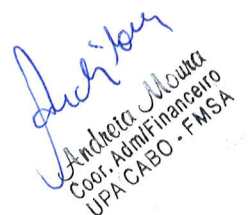 Andreia Moura
Coor. Adm/Financeiro
UPA CABO - FMSA